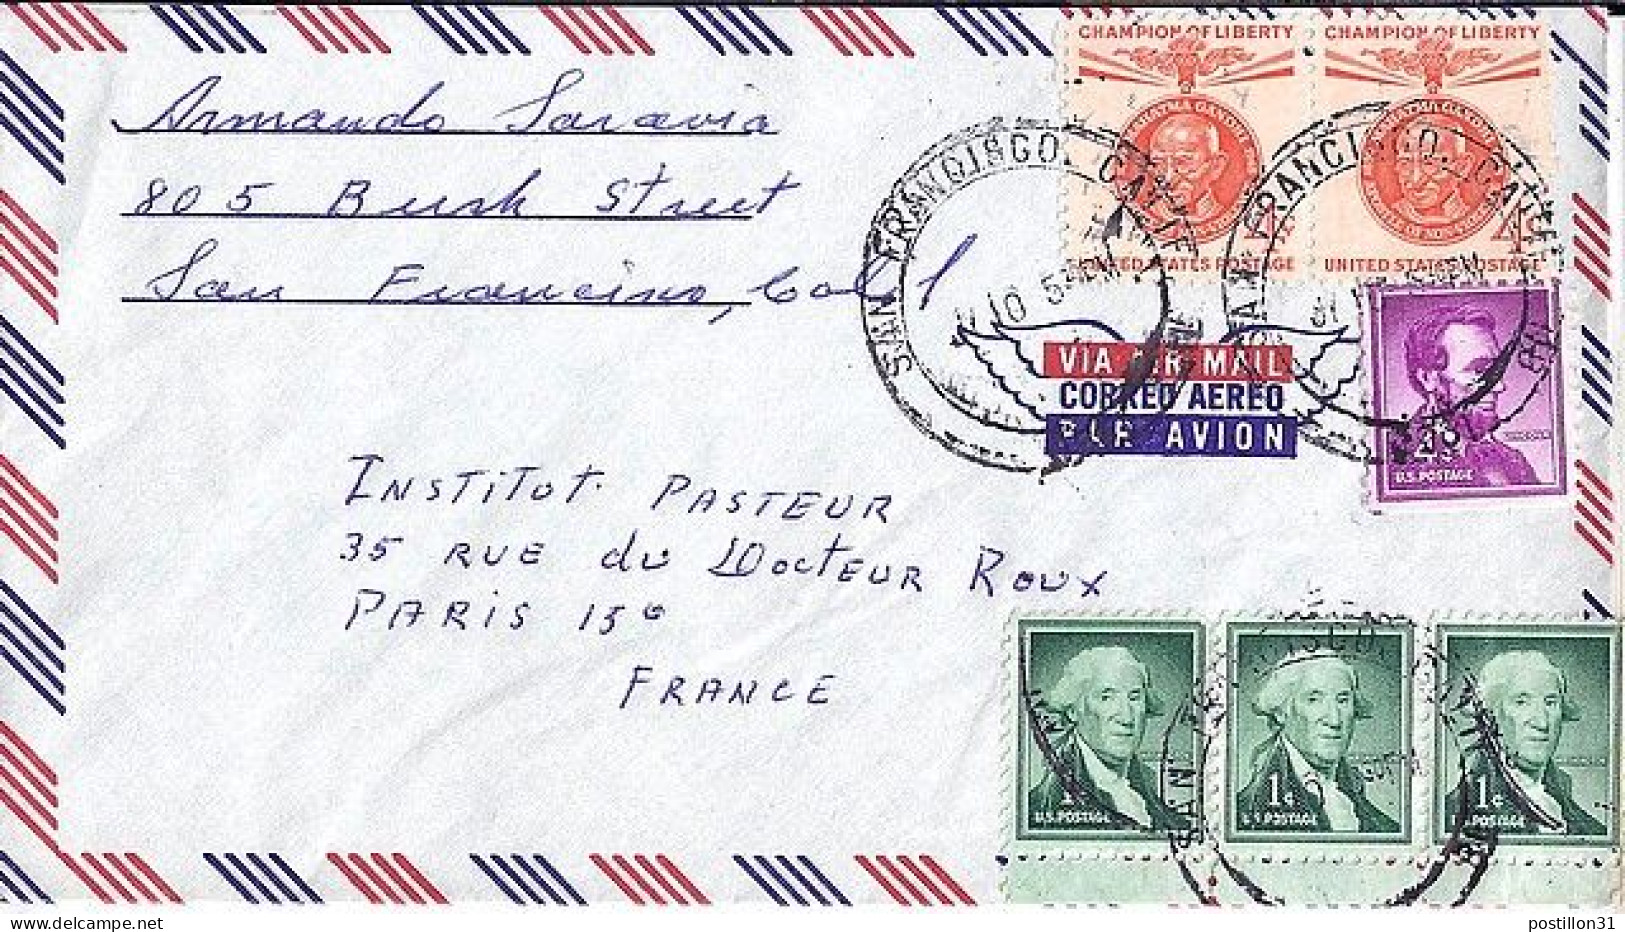 Armando Saravia
805 Bush Street
San Francisco, Calif
CHAMPION OF LIBERTY
CHAMPION OF LIBERTY
4
4
UNITED STATES POSTAGE
UNITED STATES POSTAGE
SAN FRANCISCO, CALIF
SAN FRANCISCO, CALIF
10 5 PM
VIA AIR MAIL
CORREO AEREO
PAR AVION
4¢
U.S. POSTAGE
INSTITUT PASTEUR
35 RUE du DOCTEUR ROUX
PARIS 15e
FRANCE
1¢ 1¢
U.S. POSTAGE U.S. POSTAGE U.S. POSTAGE
postillon31